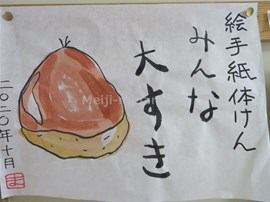 絵手紙体けん
みんな
大すき
二〇二〇年十月
ま
Meiji-